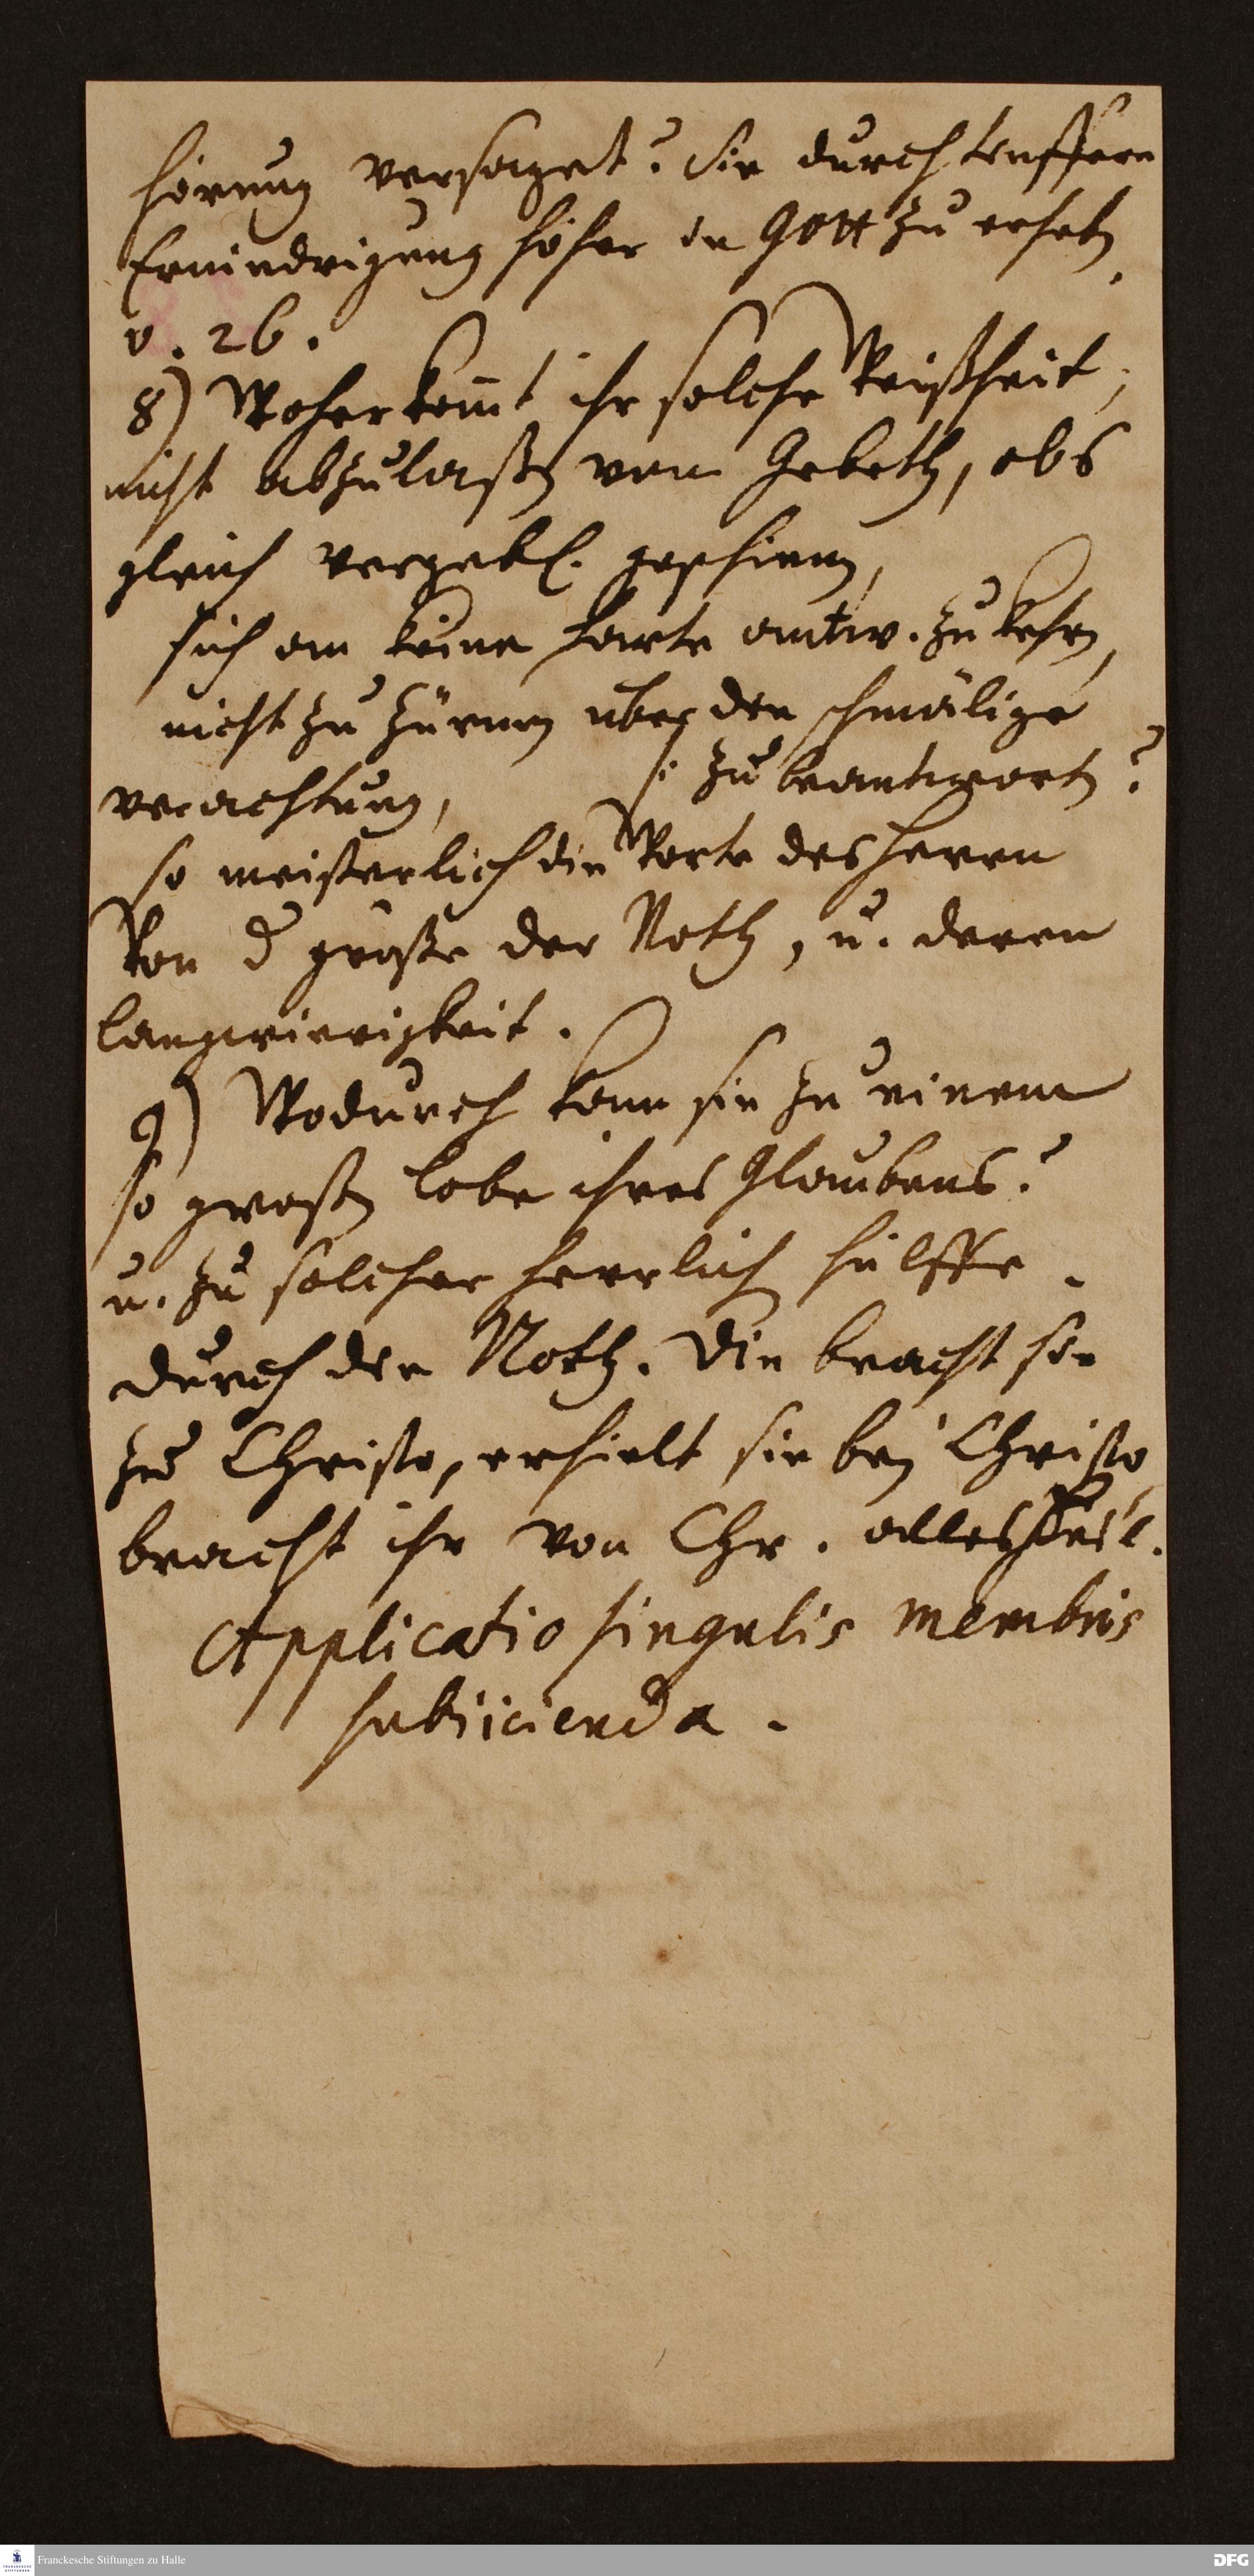 hörung versaget? Sie durch tieffere
Erniedrigung höher in Gott zu erhebn
v. 26.
8) Woher komt ihr solche Weißheit,
nicht abzulaßn vom Gebeth, obs
gleich vergebl. geschienn,
sich an keine harte antw. zu kehrn,
nicht zu zürnen über der schmälige
verachtung,
/: zu beantwortn?
so meisterlich die Worte des Herrn
Von d größe der Noth, u. deren
langwierigkeit.
9) Wodurch kam sie zu einem
so großn lobe ihres Glaubens?
u. zu solcher herrlich hülffe.
durch die Noth. Die bracht sie
zu Christo, erhielt sie bey Christo
bracht ihr von Chr. alles Heil.
Applicatio singulis membris
subiicienda.
Franckesche Stiftungen zu Halle
DFG